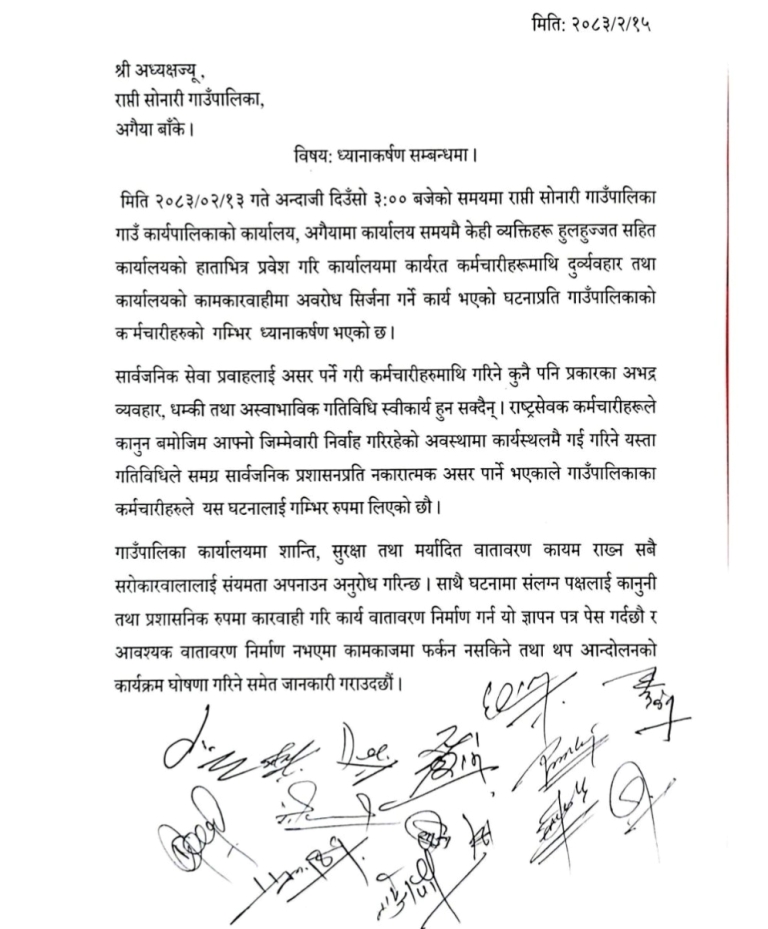 मिति: २०८३/२/१५
श्री अध्यक्षज्यू,
राप्ती सोनारी गाउँपालिका,
अगैया बाँके।
विषय: ध्यानाकर्षण सम्बन्धमा।
मिति २०८३/०२/१३ गते अन्दाजी दिउँसो ३:०० बजेको समयमा राप्ती सोनारी गाउँपालिका
गाउँ कार्यपालिकाको कार्यालय, अगैयामा कार्यालय समयमै केही व्यक्तिहरू हुलहुज्जत सहित
कार्यालयको हाताभित्र प्रवेश गरि कार्यालयमा कार्यरत कर्मचारीहरूमाथि दुर्व्यवहार तथा
कार्यालयको कामकारवाहीमा अवरोध सिर्जना गर्ने कार्य भएको घटनाप्रति गाउँपालिकाको
कर्मचारीहरुको गम्भिर ध्यानाकर्षण भएको छ।
सार्वजनिक सेवा प्रवाहलाई असर पर्ने गरी कर्मचारीहरुमाथि गरिने कुनै पनि प्रकारका अभद्र
व्यवहार, धम्की तथा अस्वाभाविक गतिविधि स्वीकार्य हुन सक्दैन्। राष्ट्रसेवक कर्मचारीहरूले
कानुन बमोजिम आफ्नो जिम्मेवारी निर्वाह गरिरहेको अवस्थामा कार्यस्थलमै गई गरिने यस्ता
गतिविधिले समग्र सार्वजनिक प्रशासनप्रति नकारात्मक असर पार्ने भएकाले गाउँपालिकाका
कर्मचारीहरुले यस घटनालाई गम्भिर रुपमा लिएको छौ।
गाउँपालिका कार्यालयमा शान्ति, सुरक्षा तथा मर्यादित वातावरण कायम राख्न सबै
सरोकारवालालाई संयमता अपनाउन अनुरोध गरिन्छ। साथै घटनामा संलग्न पक्षलाई कानुनी
तथा प्रशासनिक रुपमा कारवाही गरि कार्य वातावरण निर्माण गर्न यो ज्ञापन पत्र पेस गर्दछौ र
आवश्यक वातावरण निर्माण नभएमा कामकाजमा फर्कन नसकिने तथा थप आन्दोलनको
कार्यक्रम घोषणा गरिने समेत जानकारी गराउदछौं।